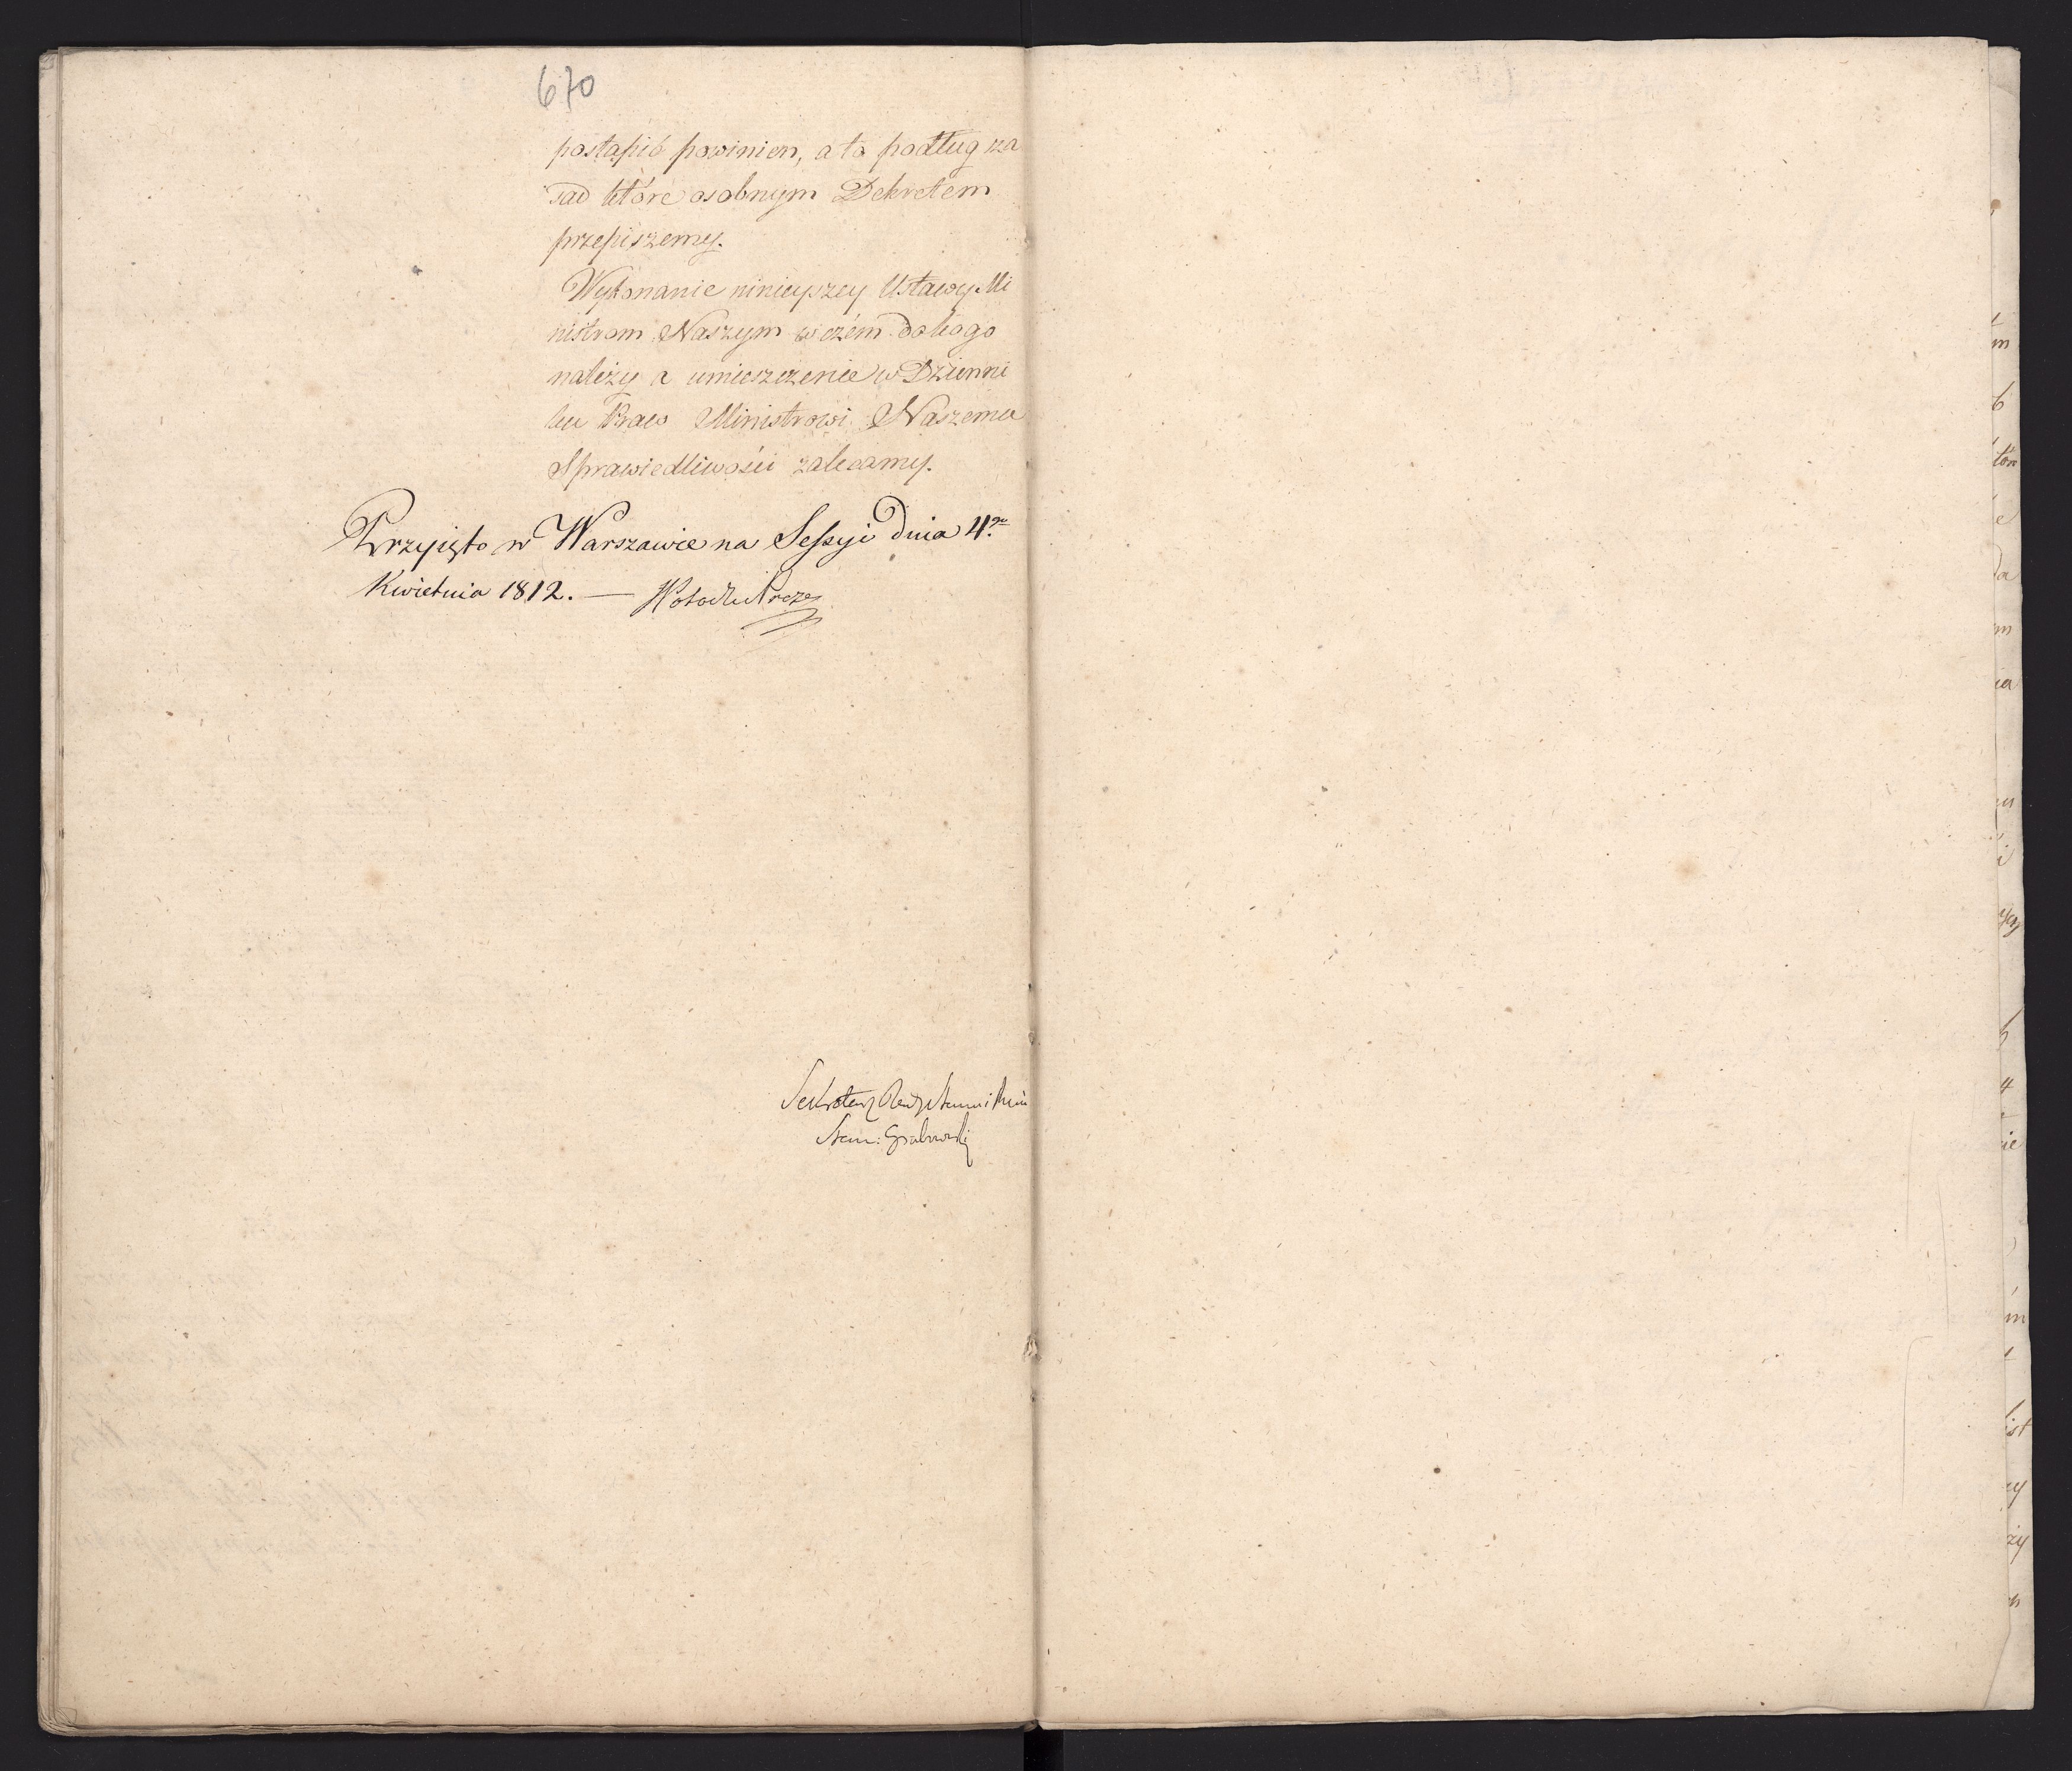 670
postąpić powinien, a to podług za
sad które osobnym Dekretem
przepiszemy.
Wykonanie ninieyszey Ustawy Mi
nistrom Naszym w czém do kogo
należy a umieszczenie w Dzienni
ku Praw Ministrowi Naszemu
Sprawiedliwości zalecamy.
Przyjęto w Warszawie na Sessyi Dnia 4go
Kwietnia 1812. —
Sekretarz Rady Stanu i
Stan: Grabowski